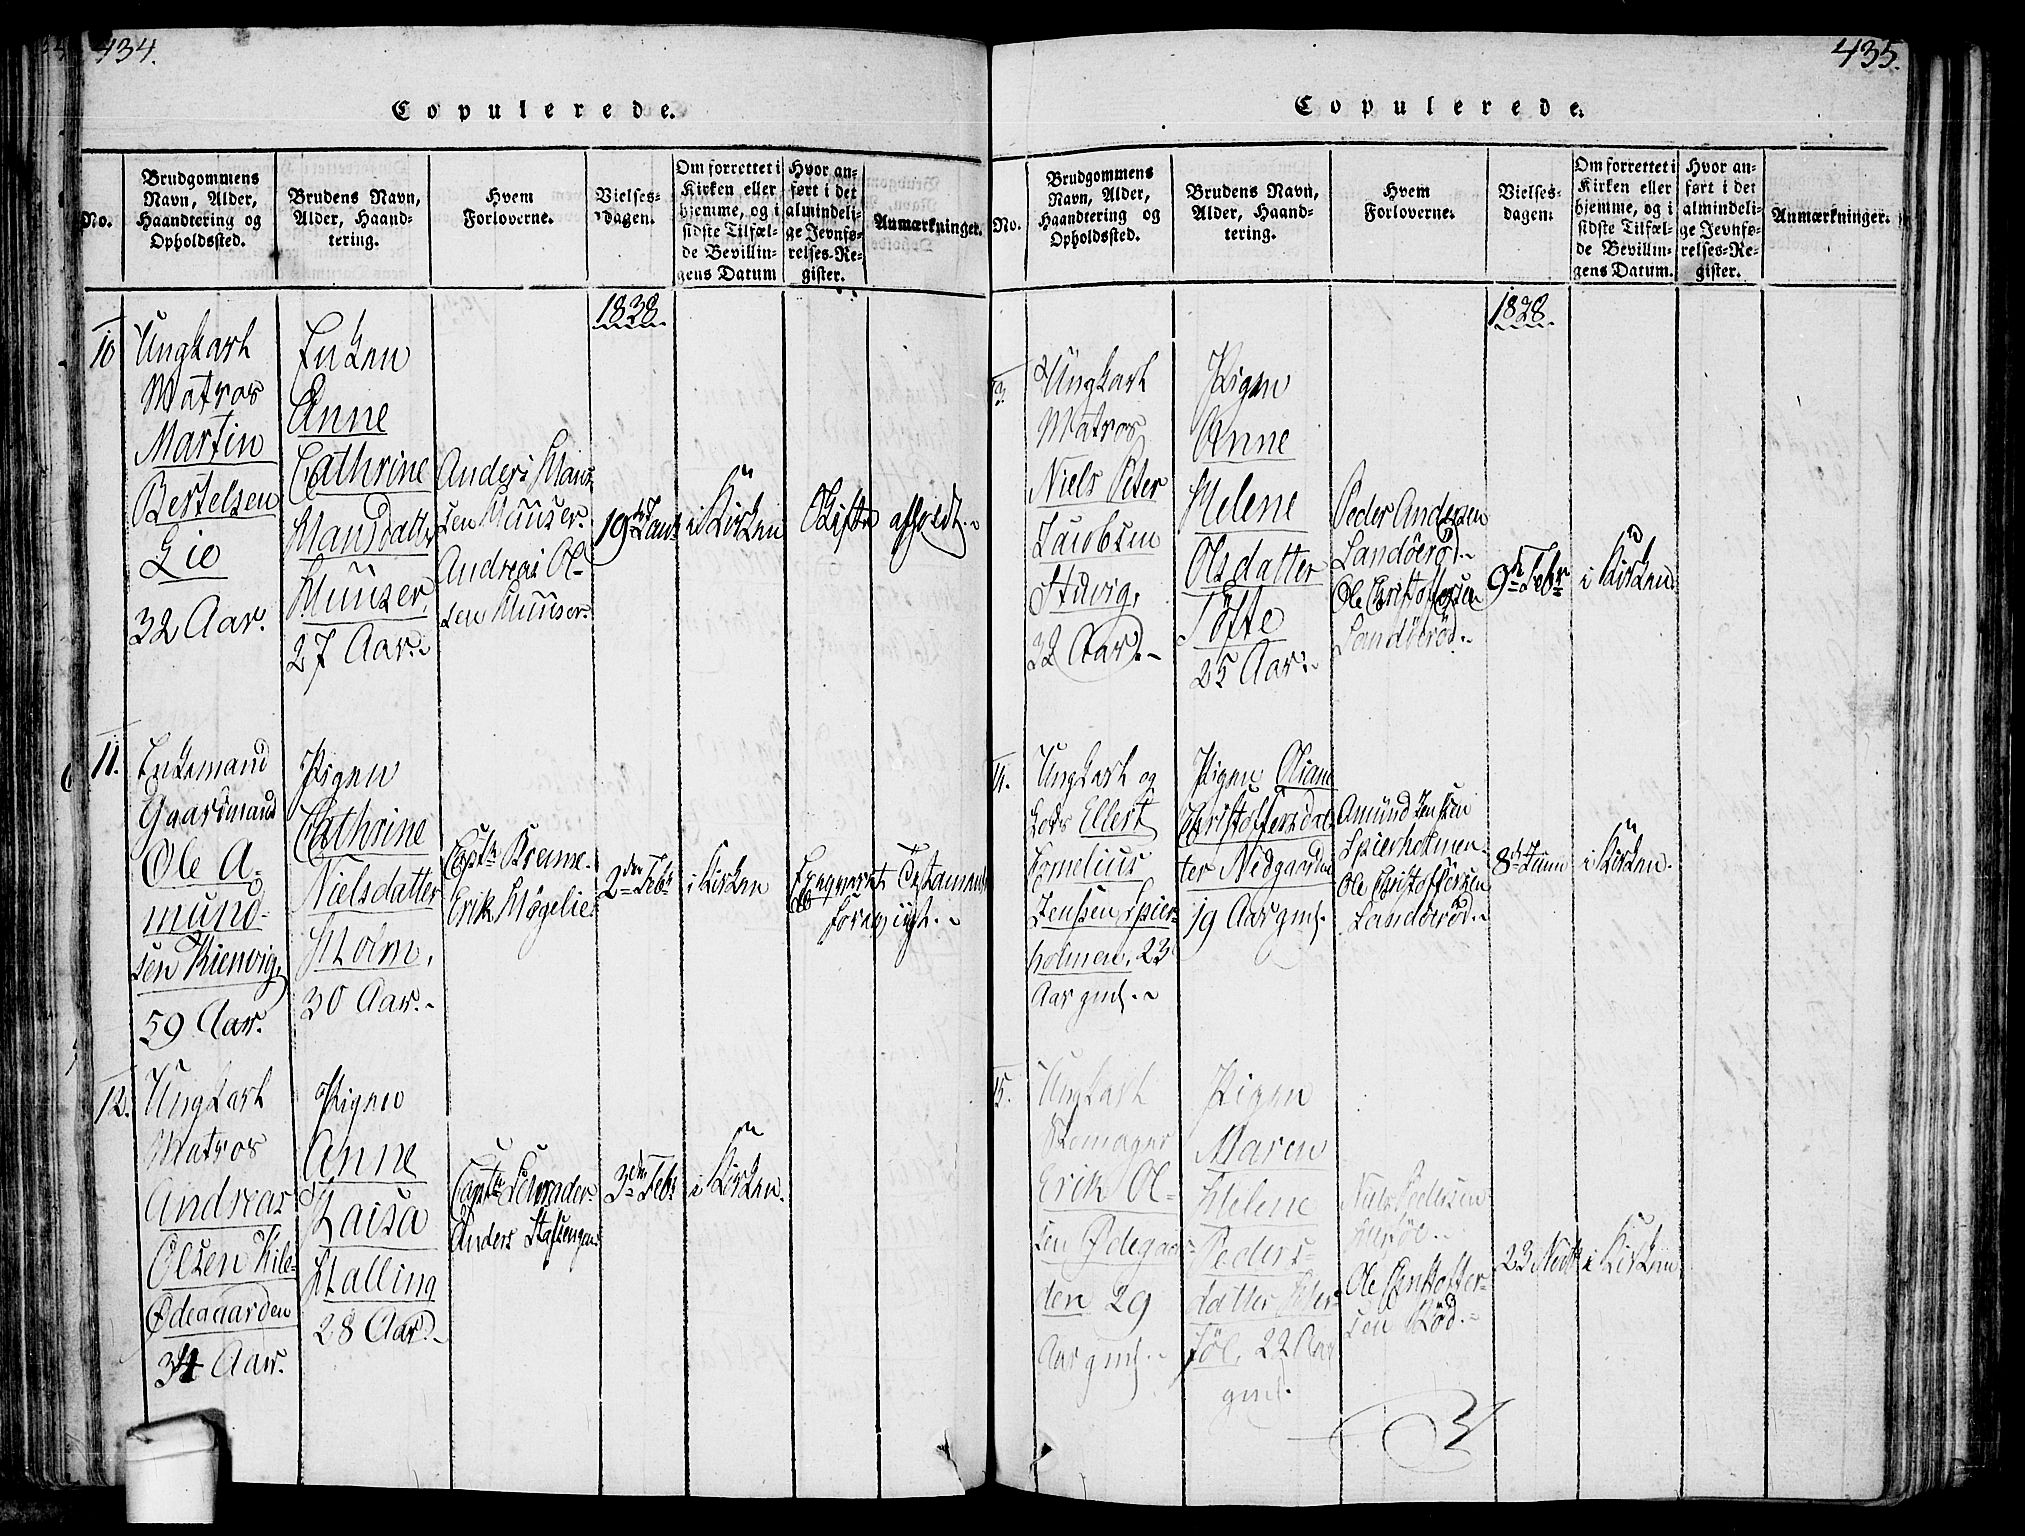 434.
Copulerede.
No.
Brudgommens
Navn, Alder,
Haandtering og
Opholdssted.
Brudens Navn,
Alder, Haand-
tering.
Hvem
Forloverne.
Vielses-
dagen.
Om forrettet i
Kirken eller
hjemme, og i
sidste Tilfæl-
de Bevillin-
gens Datum
Hvor an-
ført i det
almindeli-
ge Jevnfø-
relses-Re-
gister.
Anmærkninger.
1828.
10
Ungkarl
Matros
Martin
Bertelsen
Lie
32 Aar.
Enken
Anne
Cathrine
Hansdatter
27 Aar.
Anders Hans
sen
Andreas Ol-
sen
19de Jan:
i Kirken
Skifte afholdt.
11.
Enkemand
Gaardmand
Ole A-
mund-
sen Kienvig,
59 Aar.
Pigen
Cathrine
Nielsdatter
Holm,
30 Aar.
Captn
Erik
2den Febr
i Kirken
Testament
12.
Ungkarl
Matros
Andreas
Olsen Kile-
Ødegaarden
34 Aar.
Pigen
Anne
Kaisa
Halling
28 Aar.
Captn Schrader
Anders
3den Febr
i Kirken.
435.
Copulerede.
No.
Brudgommens
Navn, Alder,
Haandtering og
Opholdssted.
Brudens Navn,
Alder, Haand-
tering.
Hvem
Forloverne.
Vielses-
dagen.
Om forrettet i
Kirken eller
hjemme, og i
sidste Tilfæl-
de Bevillin-
gens Datum.
Hvor an-
ført i det
almindeli-
ge Jevnfø-
relses-Re-
gister.
Anmærkninger.
1828.
13.
Ungkarl
Matros
Niels Peter
Jacobsen
32 Aar.
Pigen
Anne
Helene
Olsdatter
Töfte
25 Aar.
Peder Andersen
Sandöeröd.
Ole Christoffersen
Sandöeröd.
9de Febr
i Kirken.
14.
Ungkarl og
Lods Ellert
Cornelius
Jenssen Spier-
holmen, 23
Aar gml.
Pigen Oliane
Christoffersdat-
ter Nedgaarden
19 Aar gml.
Amund Jenssen
Spierholmen.
Ole Christoffersen
Sandöeröd.
8de Juni
i Kirken.
15.
Ungkarl
Skomager
Erik Ol-
sen Ødegaar-
den 29
Aar gml.
Pigen
Maren
Helene
Peders-
datter
22 Aar
gml.
Pedersen
Ole Christoffer-
sen Röd.
23
i Kirken